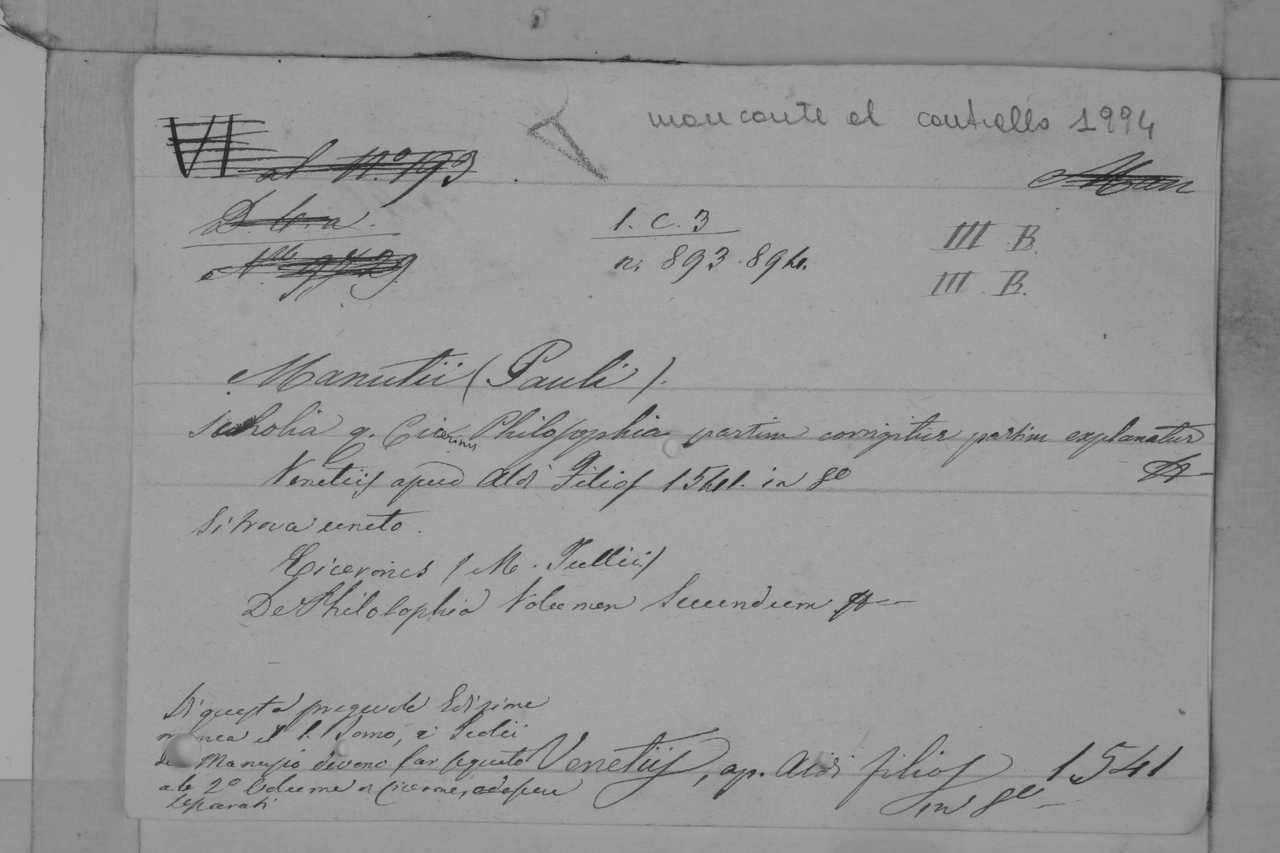 mancante al controllo 1994
VI
al N.º 193
Man
I. C. 3
III B.
n. 893-894.
III B.
Manutii (Pauli).
Scholia q. Ciceronis Philosophia partim corrigitur partim explanatur
Venetiis apud Aldi Filios 1541. in 8º
Si trova unito.
Ciceronis (M. Tullii)
De Philosophia Volumen Secundum
Di questa pregevole Edizione
manca il I. Tomo, e Scolii
del Manuzio devono far seguito
Venetiis, ap. Aldi filios 1541
al 2º Volume di Cicerone,
in 8º
separati